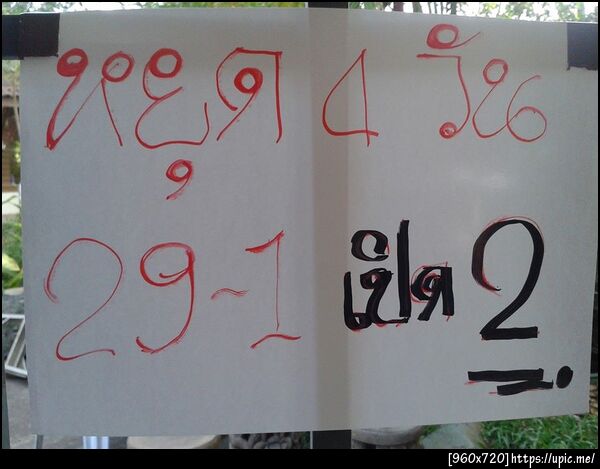 หยุด 4 วัน
29-1 เปิด 2
[960x720]https://upic.me/